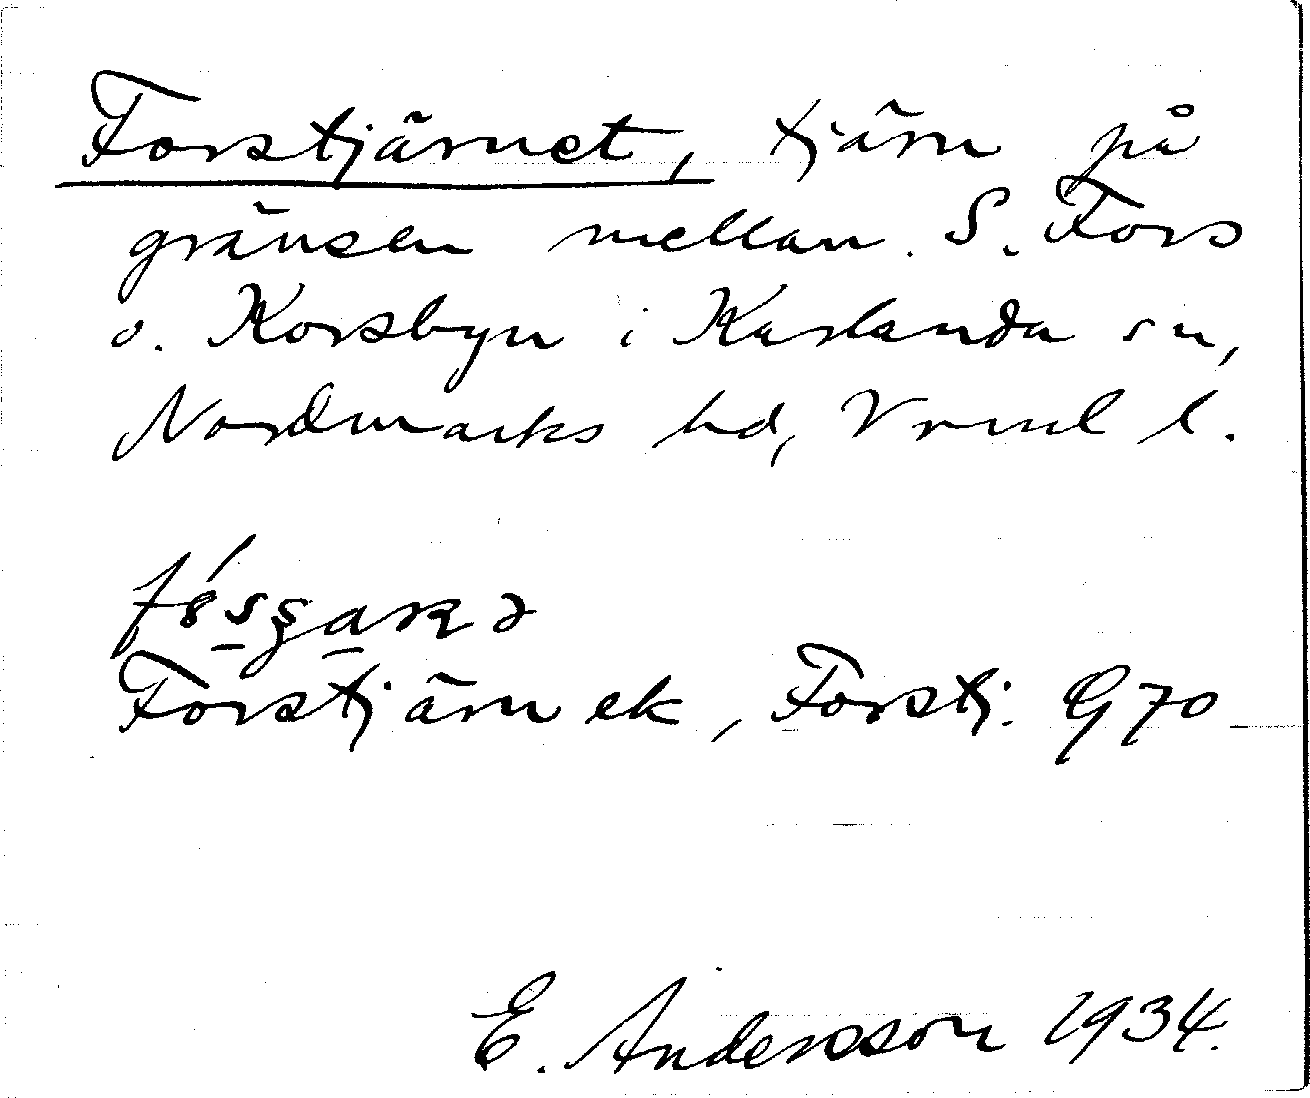 Forstjärnet, tjärn på
gränsen mellan S. Fors
o. Korsbyn i Karlanda sn,
Nordmarks hd, Vrml l.
Forstjärn ek, Forstj. G 70
E. Andersson 1934.